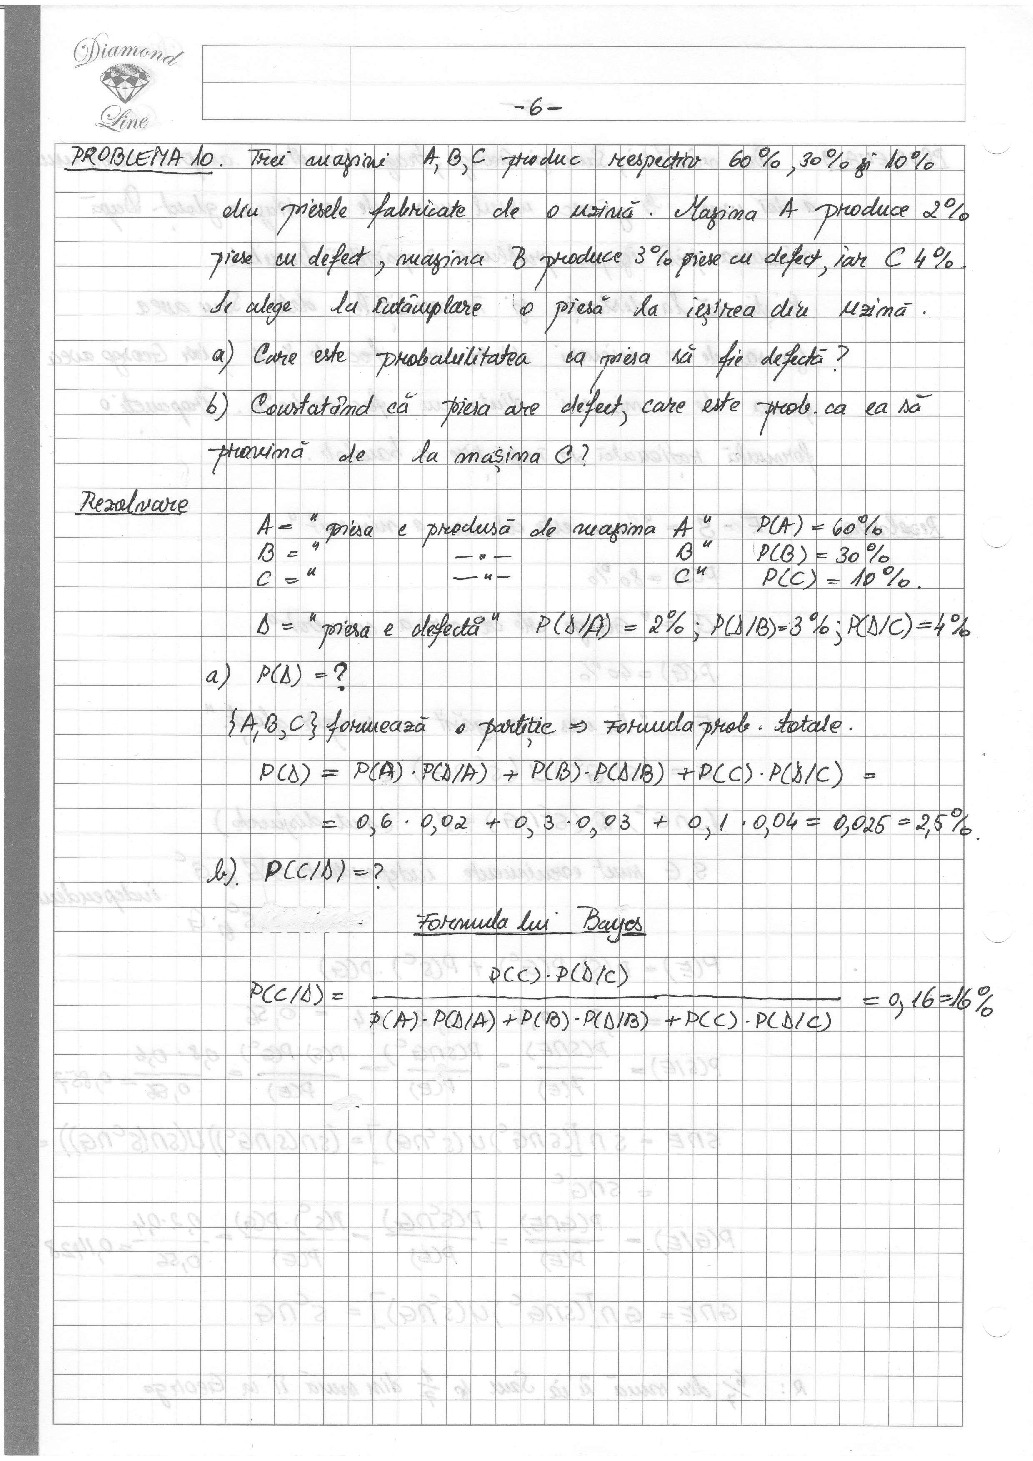 Diamond
Line
-6-
PROBLEMA 10. Trei mașini A, B, C produc respectiv 60%, 30% și 10%
din piesele fabricate de o uzină. Mașina A produce 2%
piese cu defect, mașina B produce 3% piese cu defect, iar C 4%.
Se alege la întâmplare o piesă la ieșirea din uzină.
a) Care este probabilitatea ca piesa să fie defectă?
b) Constatând că piesa are defect, care este prob. ca ea să
provină de la mașina C?
Rezolvare
A = "piesa e produsă de mașina A" P(A) = 60%
B = " —"— B" P(B) = 30%
C = " —"— C" P(C) = 10%.
Δ = "piesa e defectă" P(Δ/A) = 2%; P(Δ/B)=3%; P(Δ/C)=4%
a) P(Δ) = ?
{A,B,C} formează o partiție ⇒ Formula prob. totale.
P(Δ) = P(A)·P(Δ/A) + P(B)·P(Δ/B) + P(C)·P(Δ/C) =
= 0,6 · 0,02 + 0,3·0,03 + 0,1·0,04 = 0,025 = 2,5%.
b). P(C/Δ) = ?
Formula lui Bayes
P(C)·P(Δ/C)
P(C/Δ) = = 0,16=16%
P(A)·P(Δ/A) + P(B)·P(Δ/B) + P(C)·P(Δ/C)